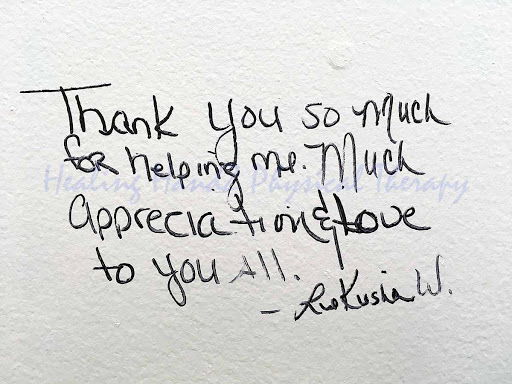 Thank you so much
for helping me. Much
Healing Hands Physical Therapy
Appreciation & Love
to you All.
W.